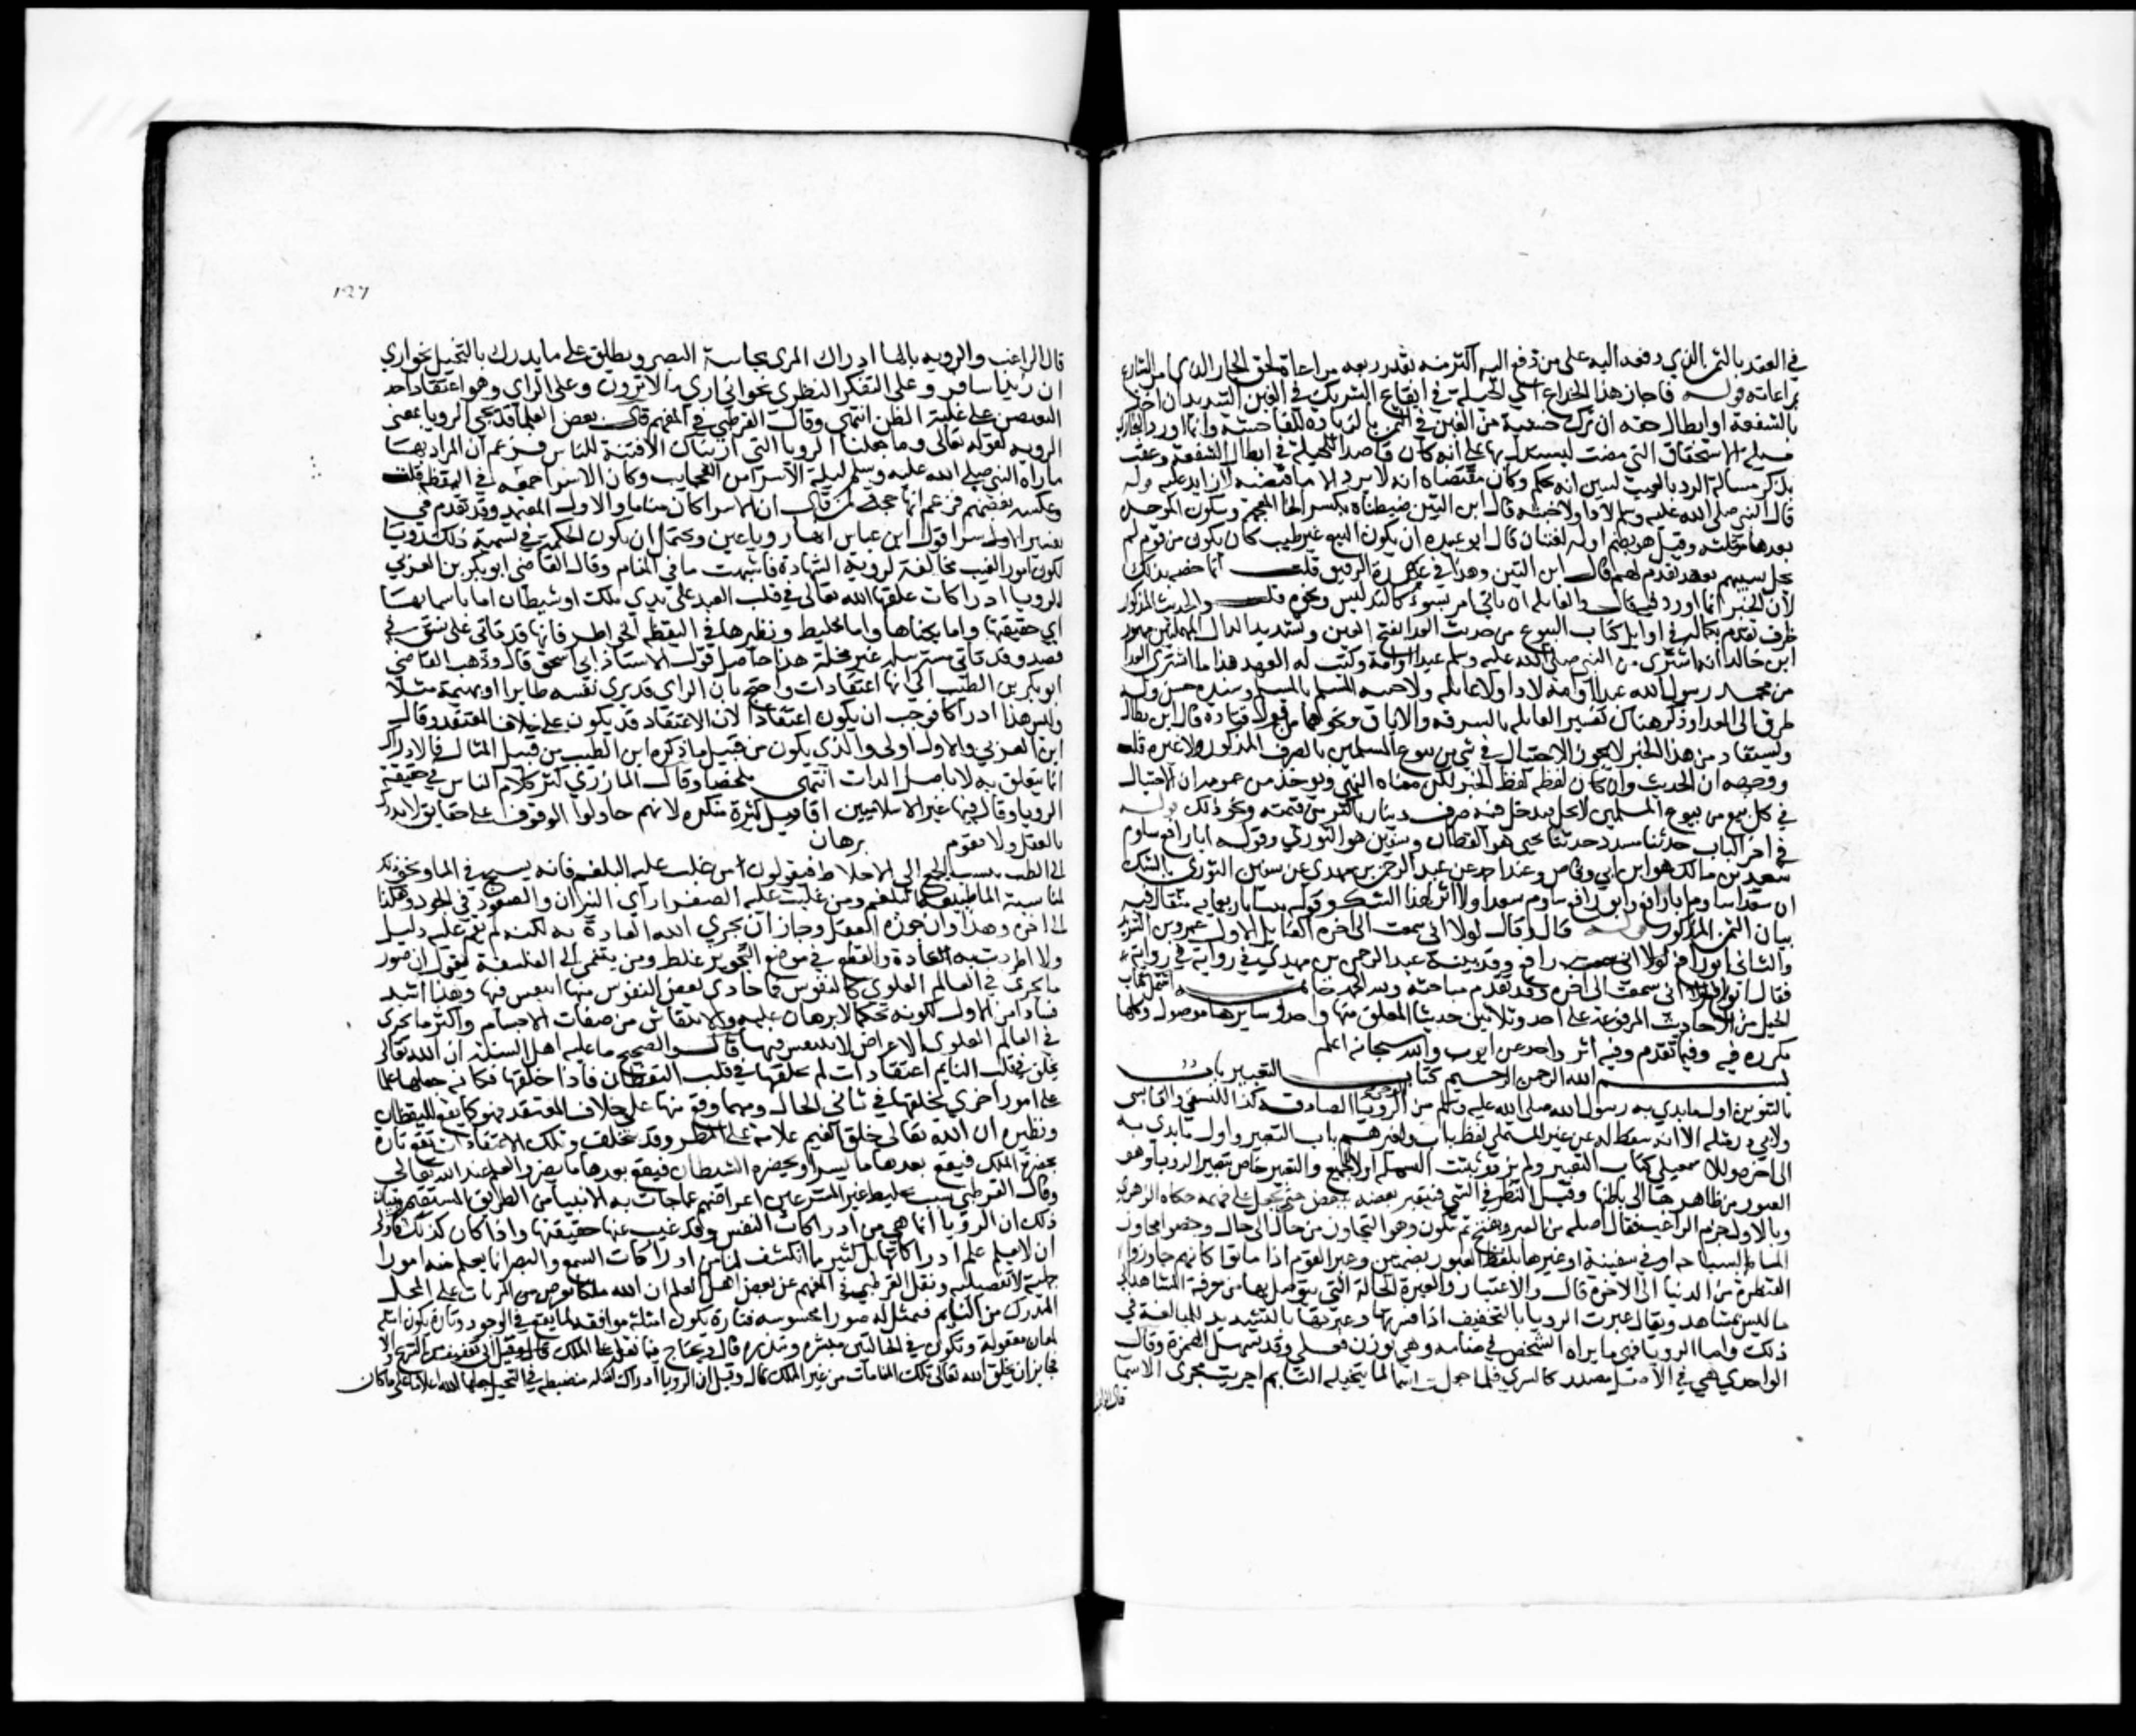 في العقد بالثمن الذي دفعه اليه على من دفع اليه اكثر منه بقدر ربعه مراعاة لحق الجار الذي امر الشارع
بمراعاته قوله فاجاز هذا الخداع اي الحيلة في ايقاع الشريك في الغبن الشديد ان اخذ
بالشفعة او ابطال حقه ان ترك خشية من الغبن في الثمن بالزيادة الفاحشة وانما اورد البخاري
مسئلة الاستحقاق التي مضت ليستدل بها على انه كان قاصدا للحيلة في ابطال الشفعة وعقب
بذكر مسالة الرد بالعيب ليبين انه تحكم وكان مقتضاه انه لا يرد الا ما قبضه لا زايد عليه قوله
قال النبي صلى الله عليه وسلم لا داء ولا خبثة قال ابن التين ضبطناه بكسر الخا المعجمة وسكون الموحدة
بعدها مثلثة وقيل هو بضم اوله لغتان قال ابو عبيده ان يكون البيع غير طيب كان يكون من قوم لم
يحل سبيهم بعهد تقدم لهم قال ابن التين وهذا في عهدة الرقيق قلت انما خصه بذلك
لان الخبر انما ورد فيه قال والغايله ان ياتي امر بسوء كالتدليس ونحوه قلت والحديث المذكور
طرف تقدم بكماله في اوايل كتاب البيوع من حديث العدا بفتح العين وتشديد الدال المهملتين مهموز
ابن خالد انه اشترى من النبي صلى الله عليه وسلم عبدا او امة وكتب له العهد هذا ما اشترى العدا
من محمد رسول الله عبدا او امة لا داء ولا غايلة ولا خبثة المسلم بالمسلم وسنده حسن وله
طرق الى العدا وذكر هناك تفسير الغايله بالسرقه والاباق ونحوهما من قول قتادة قال ابن بطال
ويستفاد من هذا الخبر لا يجوز الاحتيال في شي من بيوع المسلمين بالصرف المذكور ولا غيره قلت
ووجهه ان الحديث وان كان لفظه لفظ الخبر لكن معناه النهي ويوخذ من عمومه ان الاحتيال
في كل بيع من بيوع المسلمين لا يحل فيدخل فيه صرف دينار باكثر من قيمته ونحو ذلك قوله
في اخر الباب حدثنا مسدد حدثنا يحيى هو القطان وسفين هو الثوري وقوله ابا رافع ساوم
سعد بن مالك هو ابن ابي وقاص وعند احمد عن عبد الرحمن بن مهدي عن سفين الثوري بالشك
ان سعدا ساوم ابا رافع او ابو رافع ساوم سعدا ولا اثر لهذا الشك وقوله بيتا باربعماية مثقال فيه
بيان الثمن المذكور قوله قال وقال لولا اني سمعت الى اخره القايل الاول عمرو بن الشريد
والثاني ابو رافع لولا اني سمعت رافع وقد بينه عبد الرحمن بن مهدي في روايته في روايته
فقال ابو رافع لولا اني سمعت الى اخره وقد تقدم مباحثه ولله الحمد خاتمة اشتمل كتاب
الحيل من الاحاديث المرفوعة على احد وثلاثين حديثا المعلق منها واحد وسايرها موصول وكلها
مكرره فيه وفيما تقدم وفيه اثر واحد عن ايوب والله سبحانه اعلم
بسم الله الرحمن الرحيم كتاب التعبير باب
بالتنوين اول ما بدي به رسول الله صلى الله عليه وسلم من الوحي الرويا الصادقه كذا للنسفي والقابسي
ولابي ذر مثله الا انه سقط له عن غير المستملي لفظ باب ولغيرهم باب التعبير واول ما بدي به
الى اخره وللاسمعيلي كتاب التعبير ولم يزد وثبتت البسملة اولا للجميع والتعبير خاص بتعبير الرويا وهو
العبور من ظاهرها الى باطنها وقيل النظر في الشي فيعتبر بعضه ببعض حتى يحصل على فهمه حكاه الازهري
وبالاول جزم الراغب فقال اصله من العبر وهو بفتح ثم سكون وهو التجاوز من حال الى حال وخصوا تجاوز
الما بالسباحه او في سفينة او غيرها بلفظ العبور بضمتين وعبر القوم اذا ماتوا كانهم جازوا
القنطرة من الدنيا الى الاخرة قال والاعتبار والعبرة الحالة التي يتوصل بها من معرفة المشاهد الى
ما ليس بمشاهد ويقال عبرت الرويا بالتخفيف اذا فسرتها وعبرتها بالتشديد للمبالغة في
ذلك واما الرويا فهي ما يراه الشخص في منامه وهي بوزن فعلى وقد تسهل الهمزة وقال
الواحدي هي في الاصل مصدر كاليسرى فلما جعلت اسما لما يتخيله النايم اجريت مجرى الاسما
قال الراغب
١٢٧
قال الراغب والرويه بالها ادراك المرئ بحاسة البصر ويطلق على ما يدرك بالتخيل نحو اري
ان زيدا سافر وعلى التفكر النظري نحو اني ارى ما لا ترون وعلى الراي وهو اعتقاد احد
النقيضين على غلبة الظن انتهى وقال القرطبي في المفهم قال بعض العلما قد تجي الرويا بمعنى
الرويه كقوله تعالى وما جعلنا الرويا التي اريناك الا فتنة للناس فزعم ان المراد بها
ما راه النبي صلى الله عليه وسلم ليلة الاسرا من العجايب وكان الاسرا جميعه في اليقظة قلت
وعكسه بعضهم فزعم انها حجة لمن قال ان الاسرا كان مناما والاول المعتمد وقد تقدم في
تفسير الاسرا قول ابن عباس انها رويا عين ويحتمل ان يكون الحكمة في تسمية ذلك رويا
لكون امور الغيب مخالفة لروية الشهادة فاشبهت ما في المنام وقال القاضي ابو بكر بن العربي
الرويا ادراكات علقها الله تعالى في قلب العبد على يدي ملك او شيطان اما باسمايها
اي حقيقتها واما بكناها واما تخليط ونظيرها في اليقظة الخواطر فانها قد تاتي على نسق في
قصد وقد تاتي مسترسلة غير محصلة هذا حاصل قول الاستاذ ابي اسحق قال وذهب القاضي
ابو بكر بن الطيب الى انها اعتقادات واحتج بان الراي قد يرى نفسه طايرا او بهيمة مثلا
وليس هذا ادراكا فوجب ان يكون اعتقادا لان الاعتقاد قد يكون على خلاف المعتقد وقال
ابن العربي والاول اولى والذي يكون من قبيل ما ذكره ابن الطيب من قبيل المثال فالادراك
انما يتعلق به لا باصل الذات انتهى ملخصا وقال المازري كثر كلام الناس في حقيقة
الرويا وقال فيها غير الاسلاميين اقاويل كثيرة منكره لانهم حاولوا الوقوف على حقايق لا تدرك
بالعقل ولا يقوم برهان
الى الطب ينسب الجميع الى الاخلاط فيقولون من غلب عليه البلغم فانه يسبح في الما ونحو ذلك
لمناسبة الما طبيعة البلغم ومن غلبت عليه الصفرا راى النيران والصعود في الجو وهكذا
الى اخره وهذا وان جوزه العقل وجاز ان يجري الله العادة به لكنه لم يقم عليه دليل
ولا اطردت به العادة والقطع في موضع التجويز غلط ومن ينتمي الى الفلسفة يقول ان صور
ما يجرى في العالم العلوي كالنفوس فما حاذى بعض النفوس منها انتقش فيها وهذا اشد
فسادا من الاول لكونه تحكما لا برهان عليه والانتقاش من صفات الاجسام واكثر ما يجرى
في العالم العلوي الاعراض والاعراض لا ينتقش فيها قال والصحيح ما عليه اهل السنة ان الله تعالى
يخلق في قلب النايم اعتقادات لم يخلقها في قلب اليقظان فاذا خلقها فكانه جعلها علما
على امور اخرى يخلقها في ثاني الحال ومهما وقع منها على خلاف المعتقد فهو كما يقع لليقظان
ونظيره ان الله تعالى خلق الغيم علامة على المطر وقد يتخلف وتلك الاعتقادات تقع تارة
بحضرة الملك فيقع بعدها ما يسر او بحضرة الشيطان فيقع بعدها ما يضر والعلم عند الله تعالى
وقال القرطبي سبب تخليط غير الشرعيين اعراضهم عما جات به الانبيا من الطريق المستقيم وبيان
ذلك ان الرويا انما هي من ادراكات النفس وقد غيب عنا حقيقتها واذا كان كذلك فالاولى
ان لا يعلم علم ادراكاتها بل كثير مما انكشف لنا من ادراكات السمع والبصر انما يعلم منه امورا
جملية لا تفصيلية ونقل القرطبي في المفهم عن بعض اهل العلم ان الله ملكا يعرض المرئيات على المحل
المدرك من النايم فيمثل له صورا محسوسه فتارة يكون امثلة موافقة لما يقع في الوجود وتارة يكون امثلة
لمعان معقولة وتكون في الحالتين مبشره ومنذره قال ويحتاج فيما نقل عن الملك
فجايز ان يخلق الله تعالى تلك المثالات من غير الملك قال وقيل ان الرويا ادراك امثلة منضبطة في التخيل جعلها الله اعلاما على ما كان